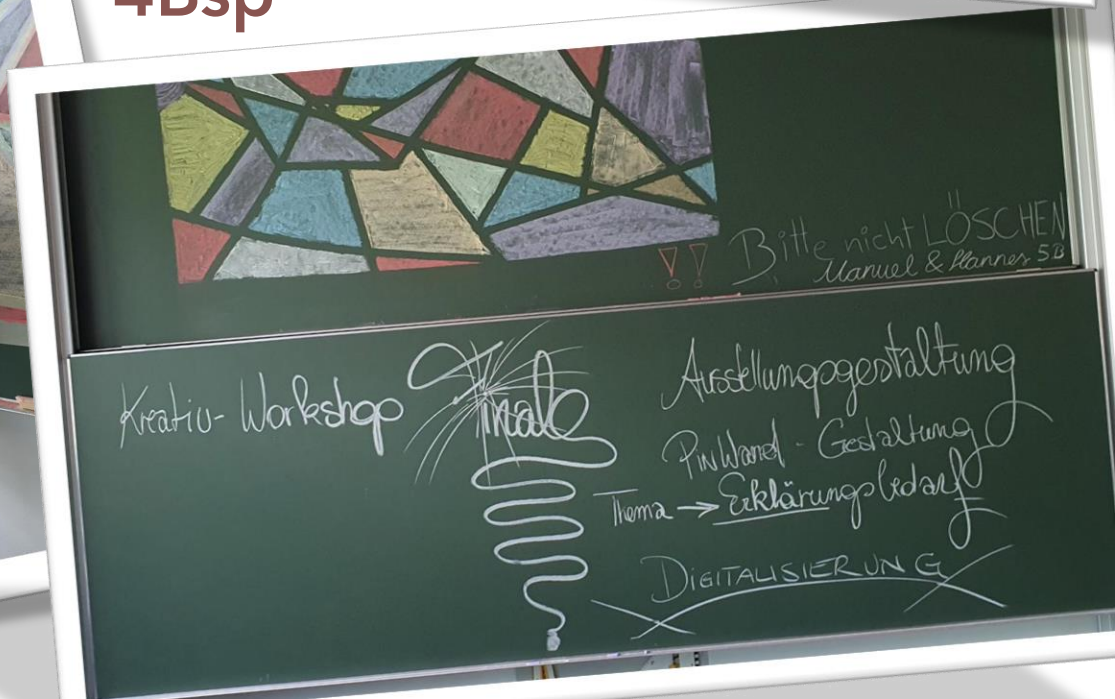 4Bsp
!! Bitte nicht LÖSCHEN
Manuel & Hannes 5B
Kreativ-Workshop Finale
Ausstellungsgestaltung
PinWand - Gestaltung
Thema → Erklärungsbedarf
DIGITALISIERUNG